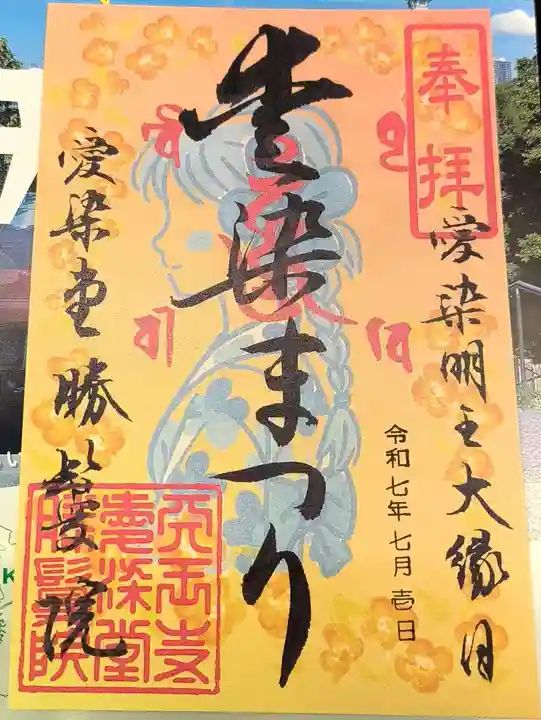 奉拝
愛染明王大縁日
令和七年七月壱日
愛染まつり
愛染堂勝鬘院
愛染堂
勝鬘院